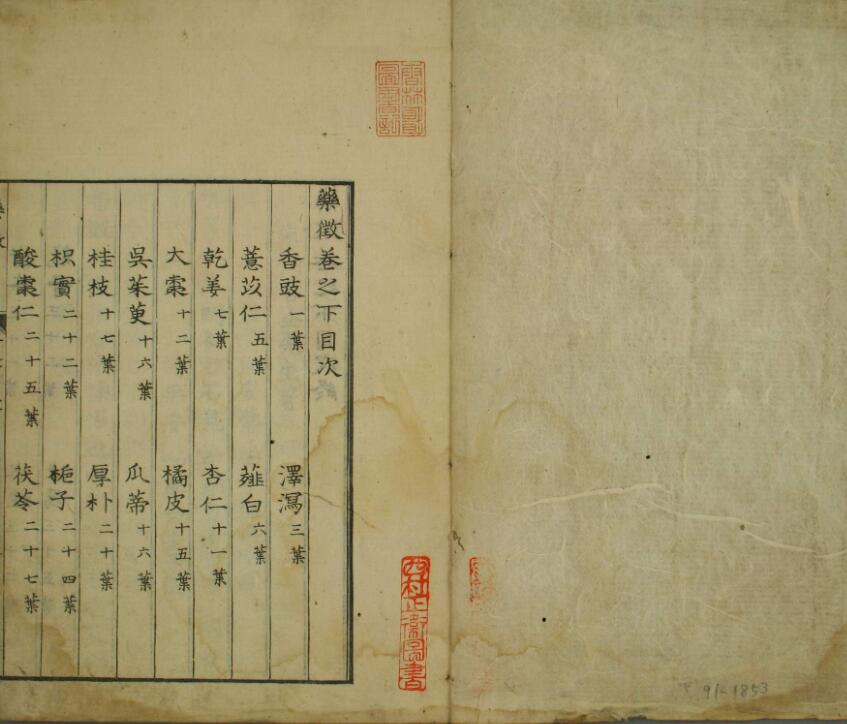 藥徴巻之下目次
香豉 一葉 澤瀉 三葉
薏苡仁 五葉 薤白 六葉
乾姜 七葉 杏仁 十一葉
大棗 十二葉 橘皮 十五葉
吳茱萸 十六葉 瓜蒂 十六葉
桂枝 十七葉 厚朴 二十葉
枳實 二十二葉 梔子 二十四葉
酸棗仁 二十五葉 茯苓 二十七葉
西村正衛圖書
91-1853